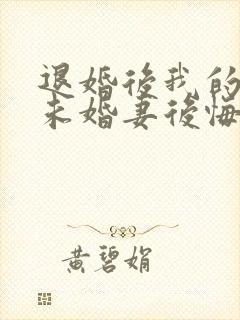 退婚後我的
未婚妻後悔
黄碧娟